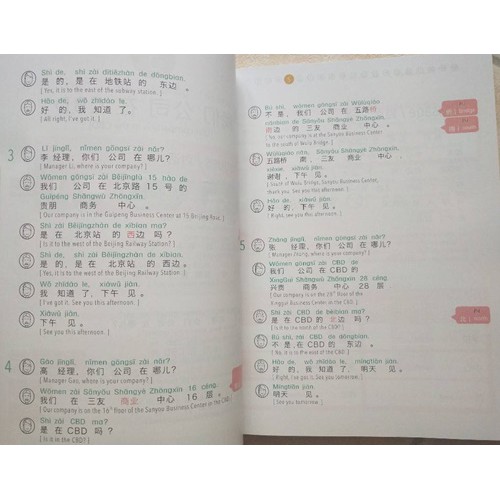 Shì de, shì zài dìtiězhàn de dōngbian.
是 的, 是 在 地铁站 的 东边 。
[ Yes, it is to the east of the subway station. ]
Hǎo de, wǒ zhīdào le.
好 的, 我 知道 了。
[ All right, I've got it. ]
3
Lǐ jīnglǐ, nǐmen gōngsī zài nǎr?
李 经理, 你们 公司 在 哪儿?
[ Manager Li, where is your company? ]
Wǒmen gōngsī zài Běijīnglù 15 hào de
我们 公司 在 北京路 15 号 的
Guìpéng Shāngwù Zhōngxīn.
贵朋 商务 中心 。
[ Our company is in the Guipeng Business Center at 15 Beijing Road. ]
Shì zài Běijīngzhàn de xībian ma?
是 在 北京站 的 西边 吗 ?
[ Is it to the west of the Beijing Railway Station? ]
Shì de, shì zài Běijīngzhàn de xībian.
是 的, 是 在 北京站 的 西边 。
[ Yes, it is to the west of the Beijing Railway Station. ]
Wǒ zhīdào le, xiàwǔ jiàn.
我 知道 了, 下午 见 。
[ I've got it. See you this afternoon. ]
Xiàwǔ jiàn.
下午 见 。
[ See you this afternoon. ]
4
Gāo jīnglǐ, nǐmen gōngsī zài nǎr?
高 经理, 你们 公司 在 哪儿?
[ Manager Gao, where is your company? ]
Wǒmen zài Sānyǒu Shāngyè Zhōngxīn 16 céng.
我们 在 三友 商业 中心 16 层 。
[ Our company is on the 16th floor of the Sanyou Business Center in the CBD. ]
Shì zài CBD ma?
是 在 CBD 吗 ?
[ Is it in the CBD? ]
Bú shì, wǒmen gōngsī zài Wǔlùqiáo
不 是, 我们 公司 在 五路桥
nánbian de Sānyǒu Shāngyè Zhōngxīn.
南边 的 三友 商业 中心 。
[ No, our company is at the Sanyou Business Center to the south of Wulu Bridge. ]
Wǔlùqiáo nán, Sānyǒu Shāngyè Zhōngxīn,
五路桥 南, 三友 商业 中心,
xièxie, xiàwǔ jiàn.
谢谢, 下午 见 。
[ South of Wulu Bridge, Sanyou Business Center, thank you. See you this afternoon. ]
Hǎo de, xiàwǔ jiàn.
好 的, 下午 见 。
[ Right, see you this afternoon. ]
5
Zhāng jīnglǐ, nǐmen gōngsī zài nǎr?
张 经理, 你们 公司 在 哪儿?
[ Manager Zhang, where is your company? ]
Wǒmen gōngsī zài CBD de
我们 公司 在 CBD 的
Xīngguì Shāngwù Zhōngxīn 28 céng.
兴贵 商务 中心 28 层 。
[ Our company is on the 28th floor of the Xinggui Business Center in the CBD. ]
Shì zài CBD de běibian ma?
是 在 CBD 的 北边 吗 ?
[ Is it to the north of the CBD? ]
Bú shì, zài CBD de dōngbian.
不 是, 在 CBD 的 东边 。
[ No, it is to the east of the CBD. ]
Hǎo de, wǒ zhīdào le, míngtiān jiàn.
好 的, 我 知道 了, 明天 见 。
[ Right, I've got it. See you tomorrow. ]
Míngtiān jiàn.
明天 见 。
[ See you tomorrow. ]
桥 | bridge
南 | south
北 | north